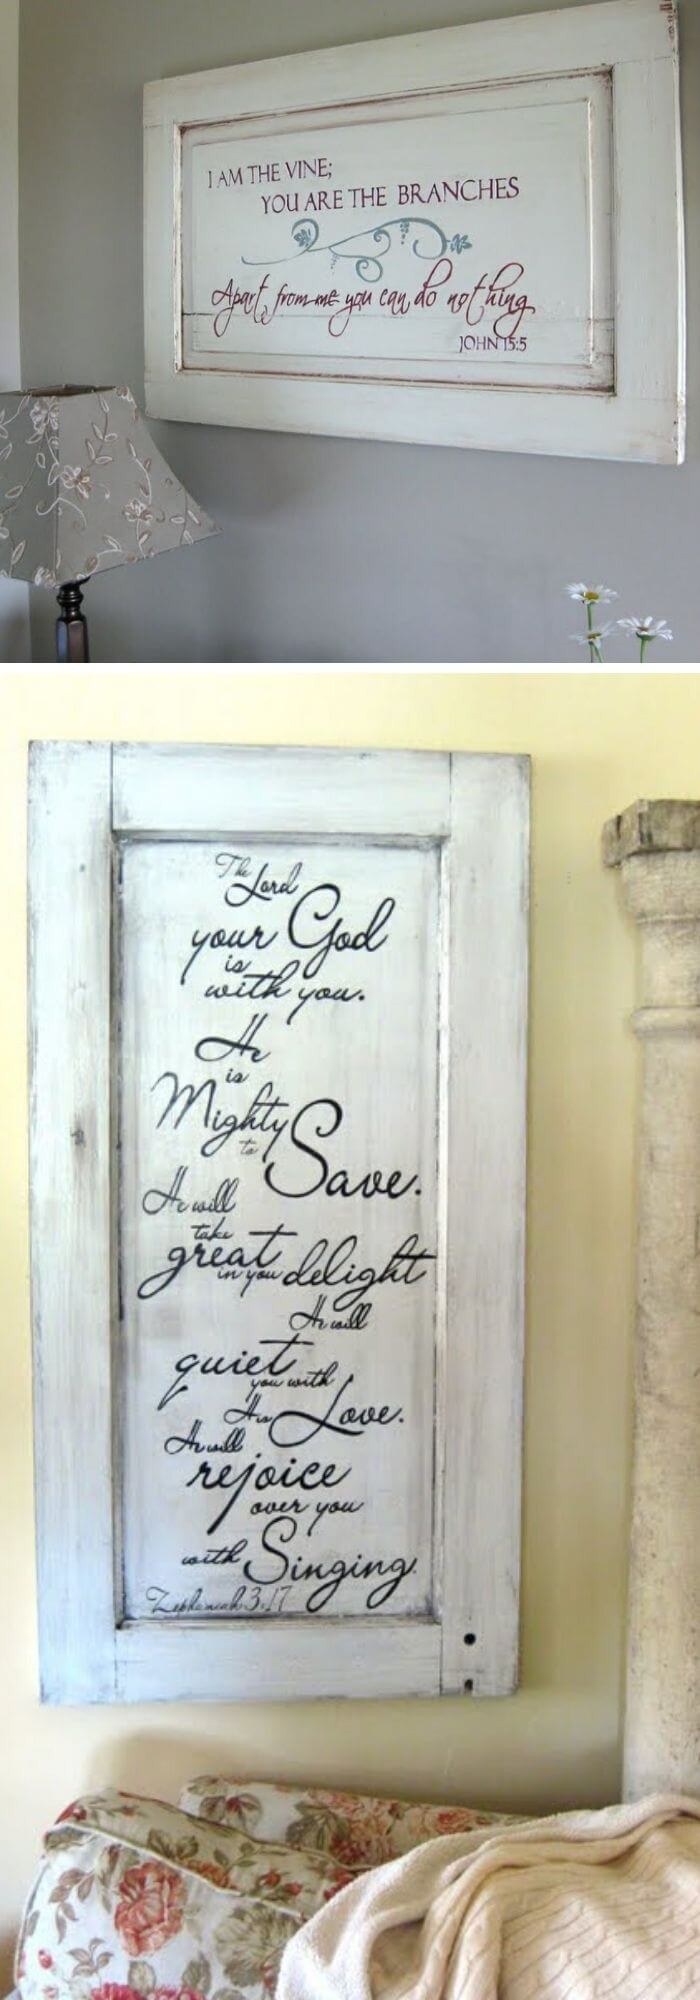 I AM THE VINE;
YOU ARE THE BRANCHES
Apart from me you can do nothing
JOHN 15:5
The Lord
your God
is
with you.
He
is
Mighty
to
Save.
He will
take
great
in you delight
He will
quiet
you with
His Love.
He will
rejoice
over you
with Singing
Zephaniah 3:17